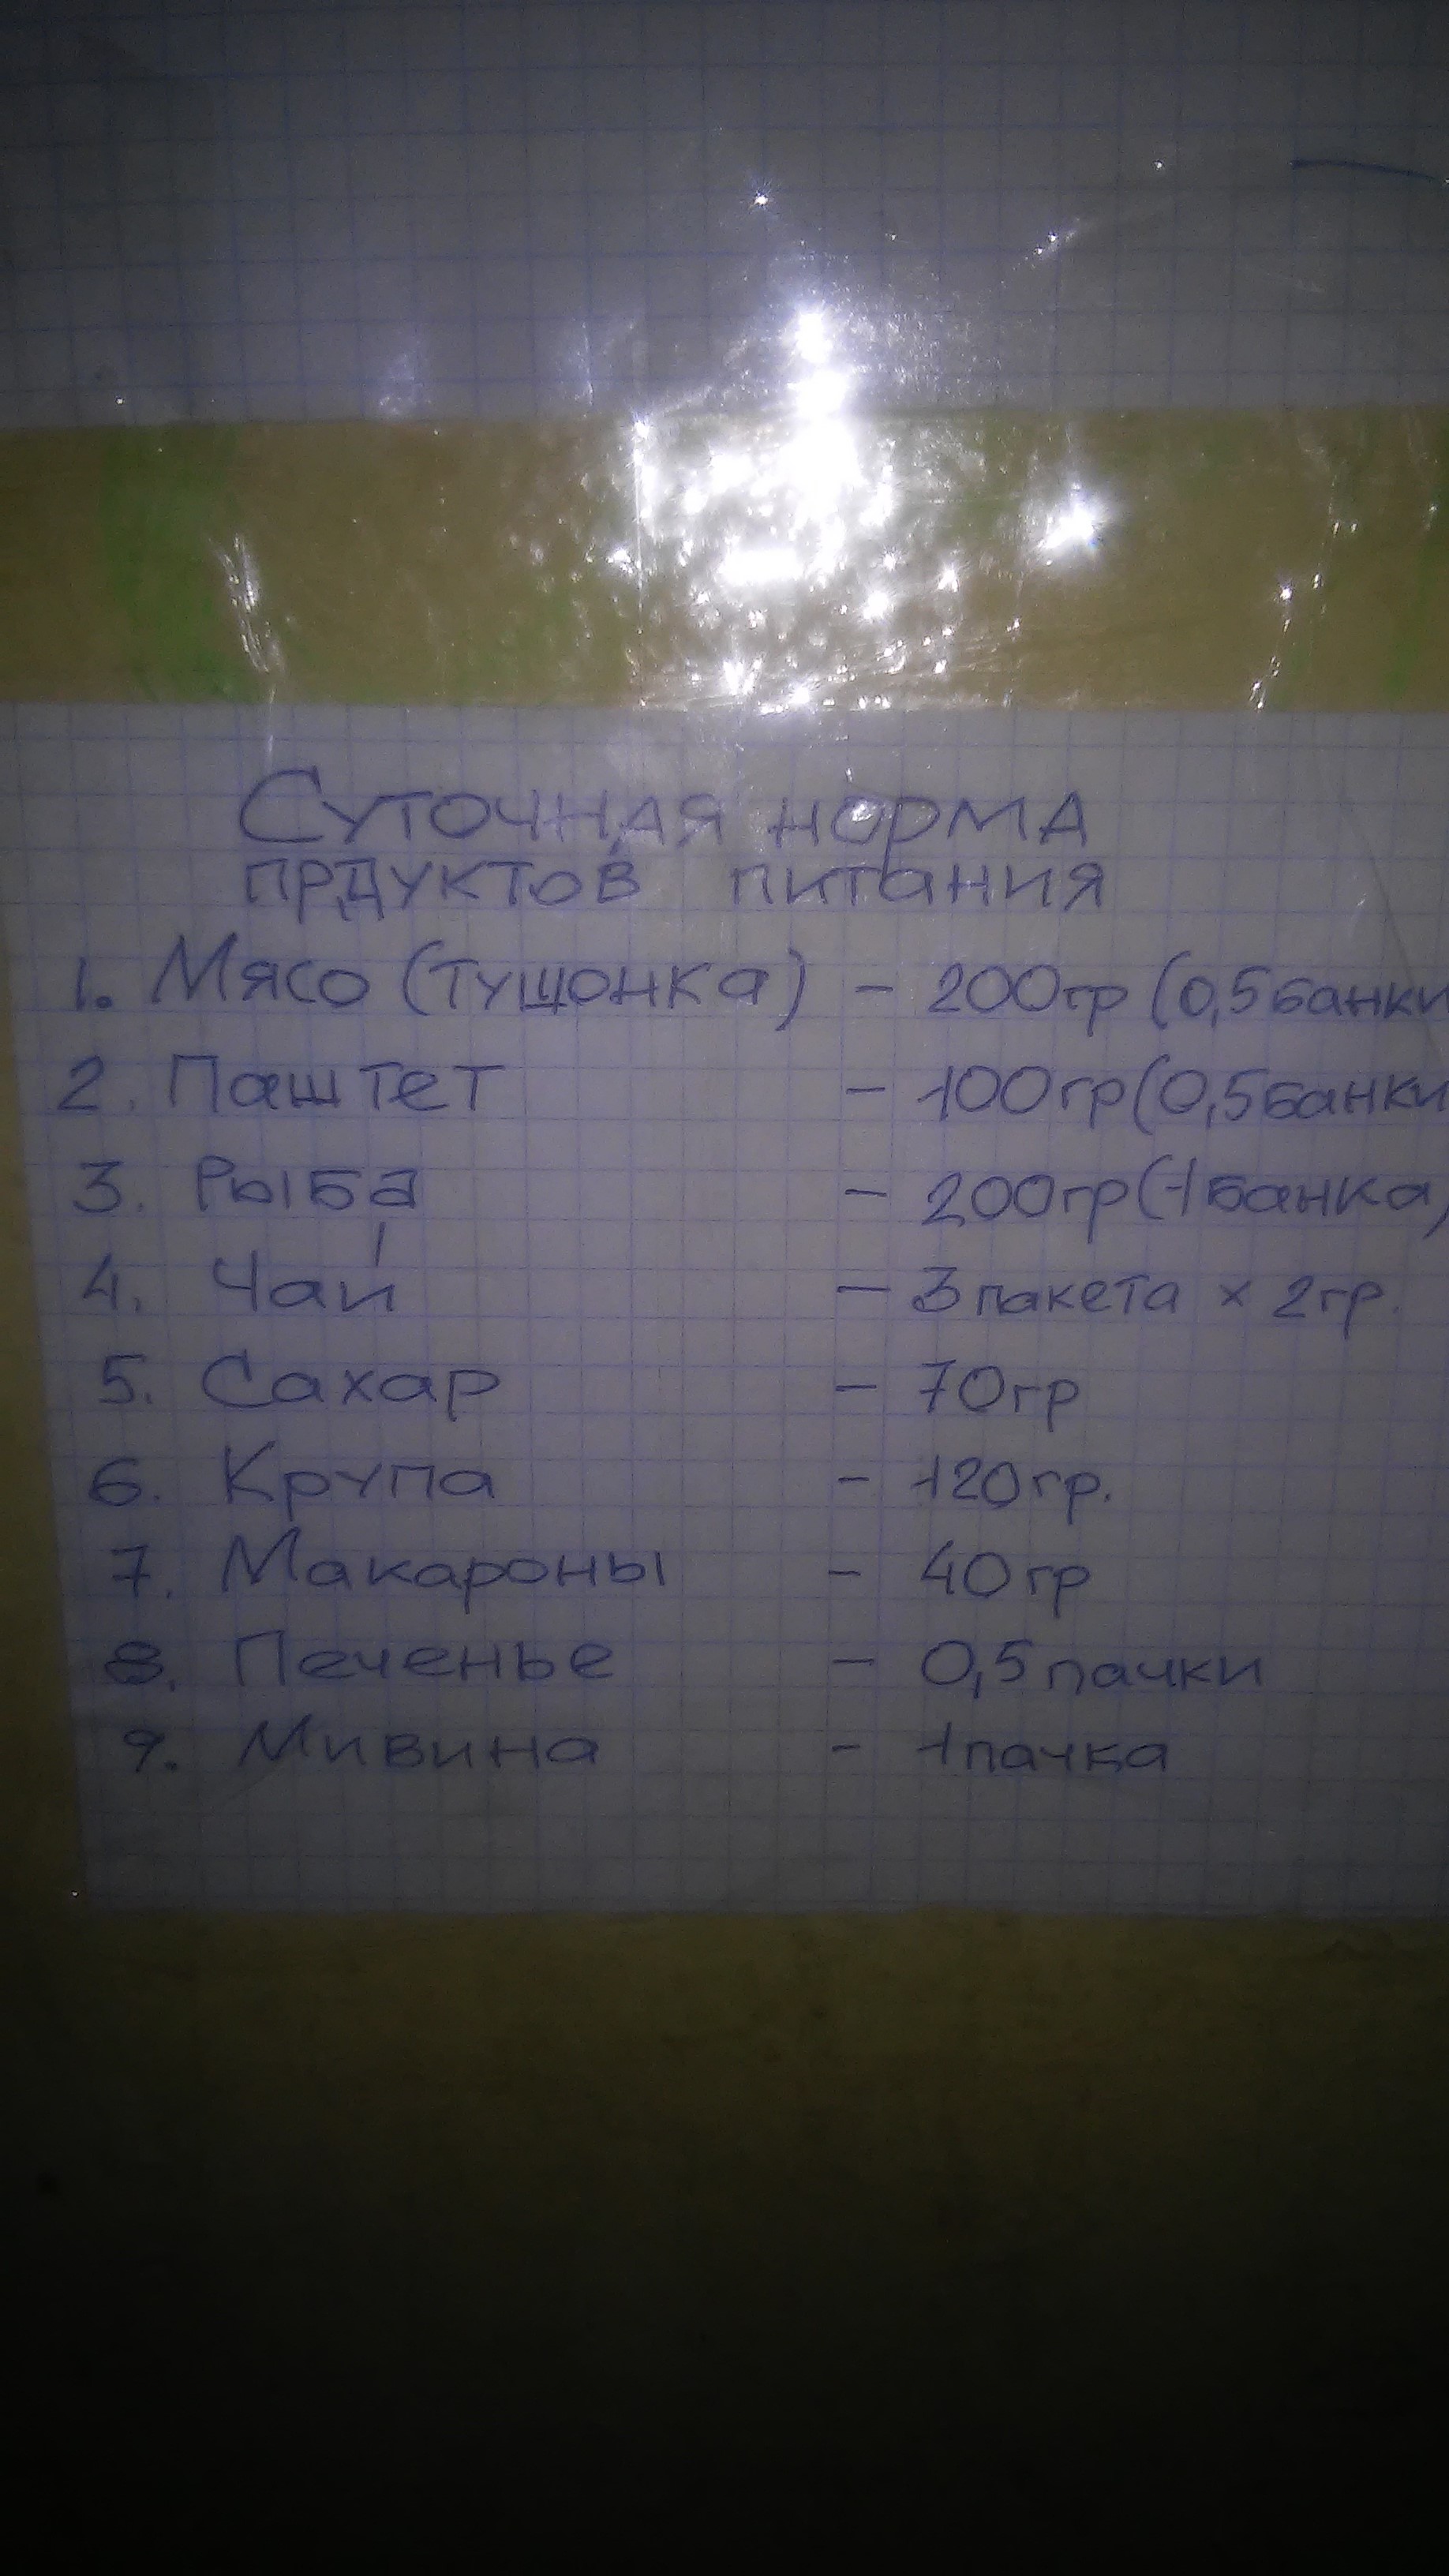 Суточная норма
прдуктов питания
1. Мясо (тущонка) - 200гр (0,5банки
2. Паштет - 100гр (0,5банки
3. Рыба - 200гр (1банка)
4. Чай - 3пакета × 2гр.
5. Сахар - 70гр
6. Крупа - 120гр.
7. Макароны - 40гр
8. Печенье - 0,5пачки
9. Мивина - 1пачка